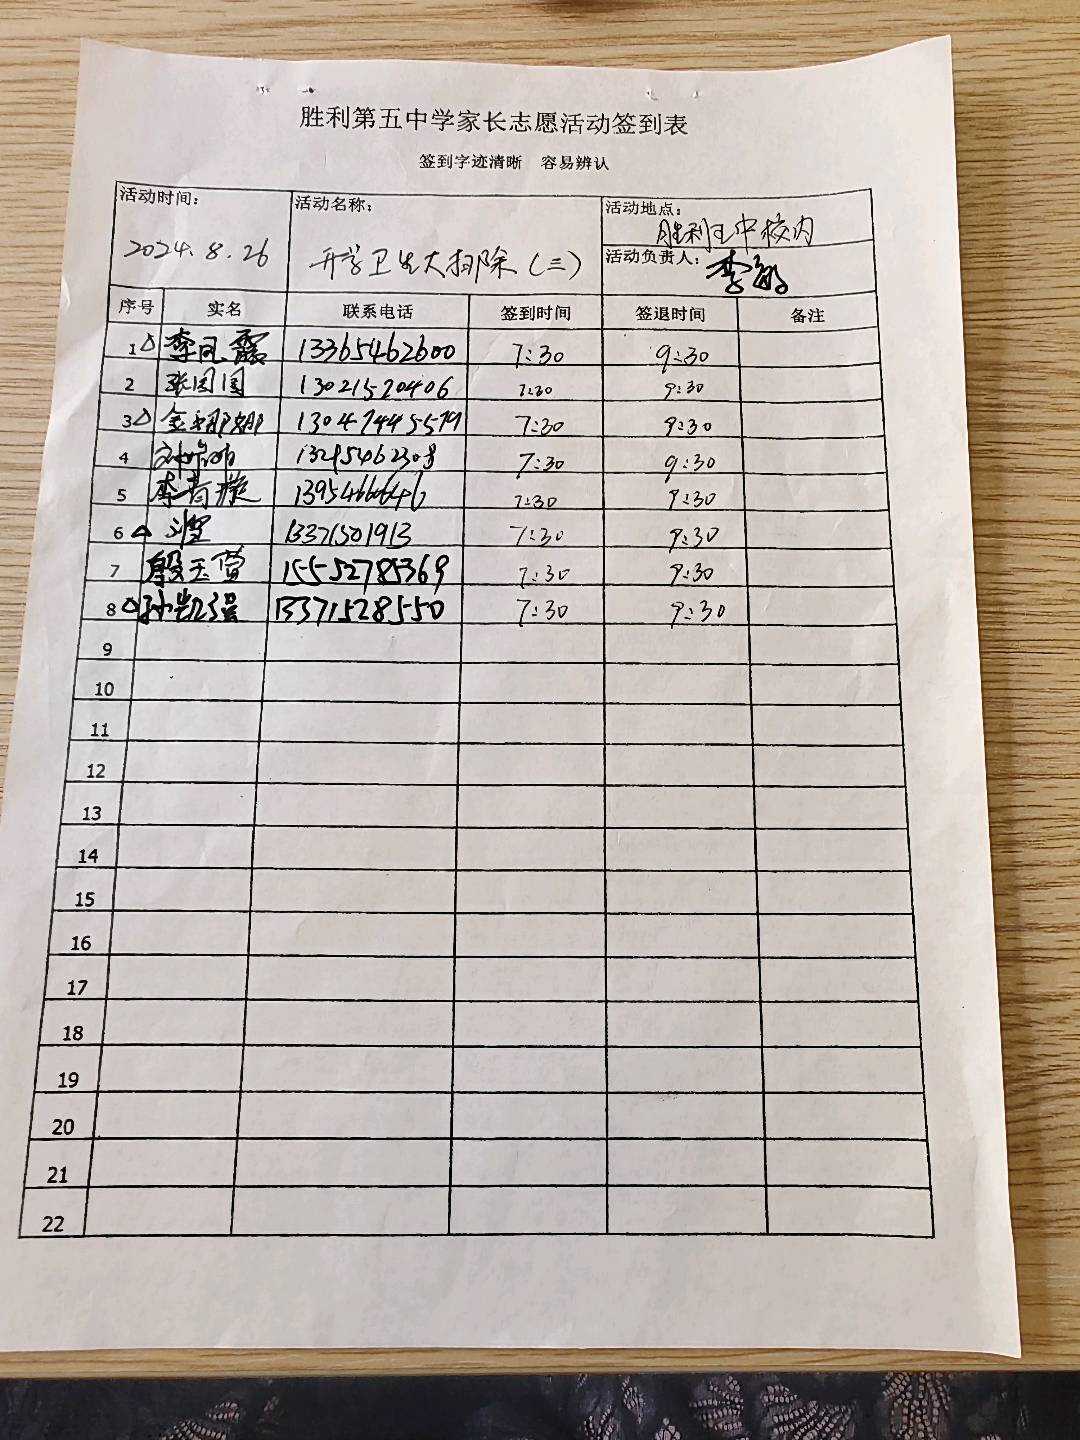 胜利第五中学家长志愿活动签到表
签到字迹清晰 容易辨认
活动时间: 2024.8.26
活动名称: 开学卫生大扫除(三)
活动地点: 胜利五中校内
活动负责人: 李
序号 实名 联系电话 签到时间 签退时间 备注
1△ 李凤霞 13365462600 7:30 9:30
2 张园园 13021520406 7:30 9:30
3△ 金娜娜 13047445579 7:30 9:30
4 7:30 9:30
5 李青 7:30 9:30
6△ 13371501913 7:30 9:30
7 殷玉营 15552785369 7:30 9:30
8△ 孙凯强 13371528550 7:30 9:30
9
10
11
12
13
14
15
16
17
18
19
20
21
22